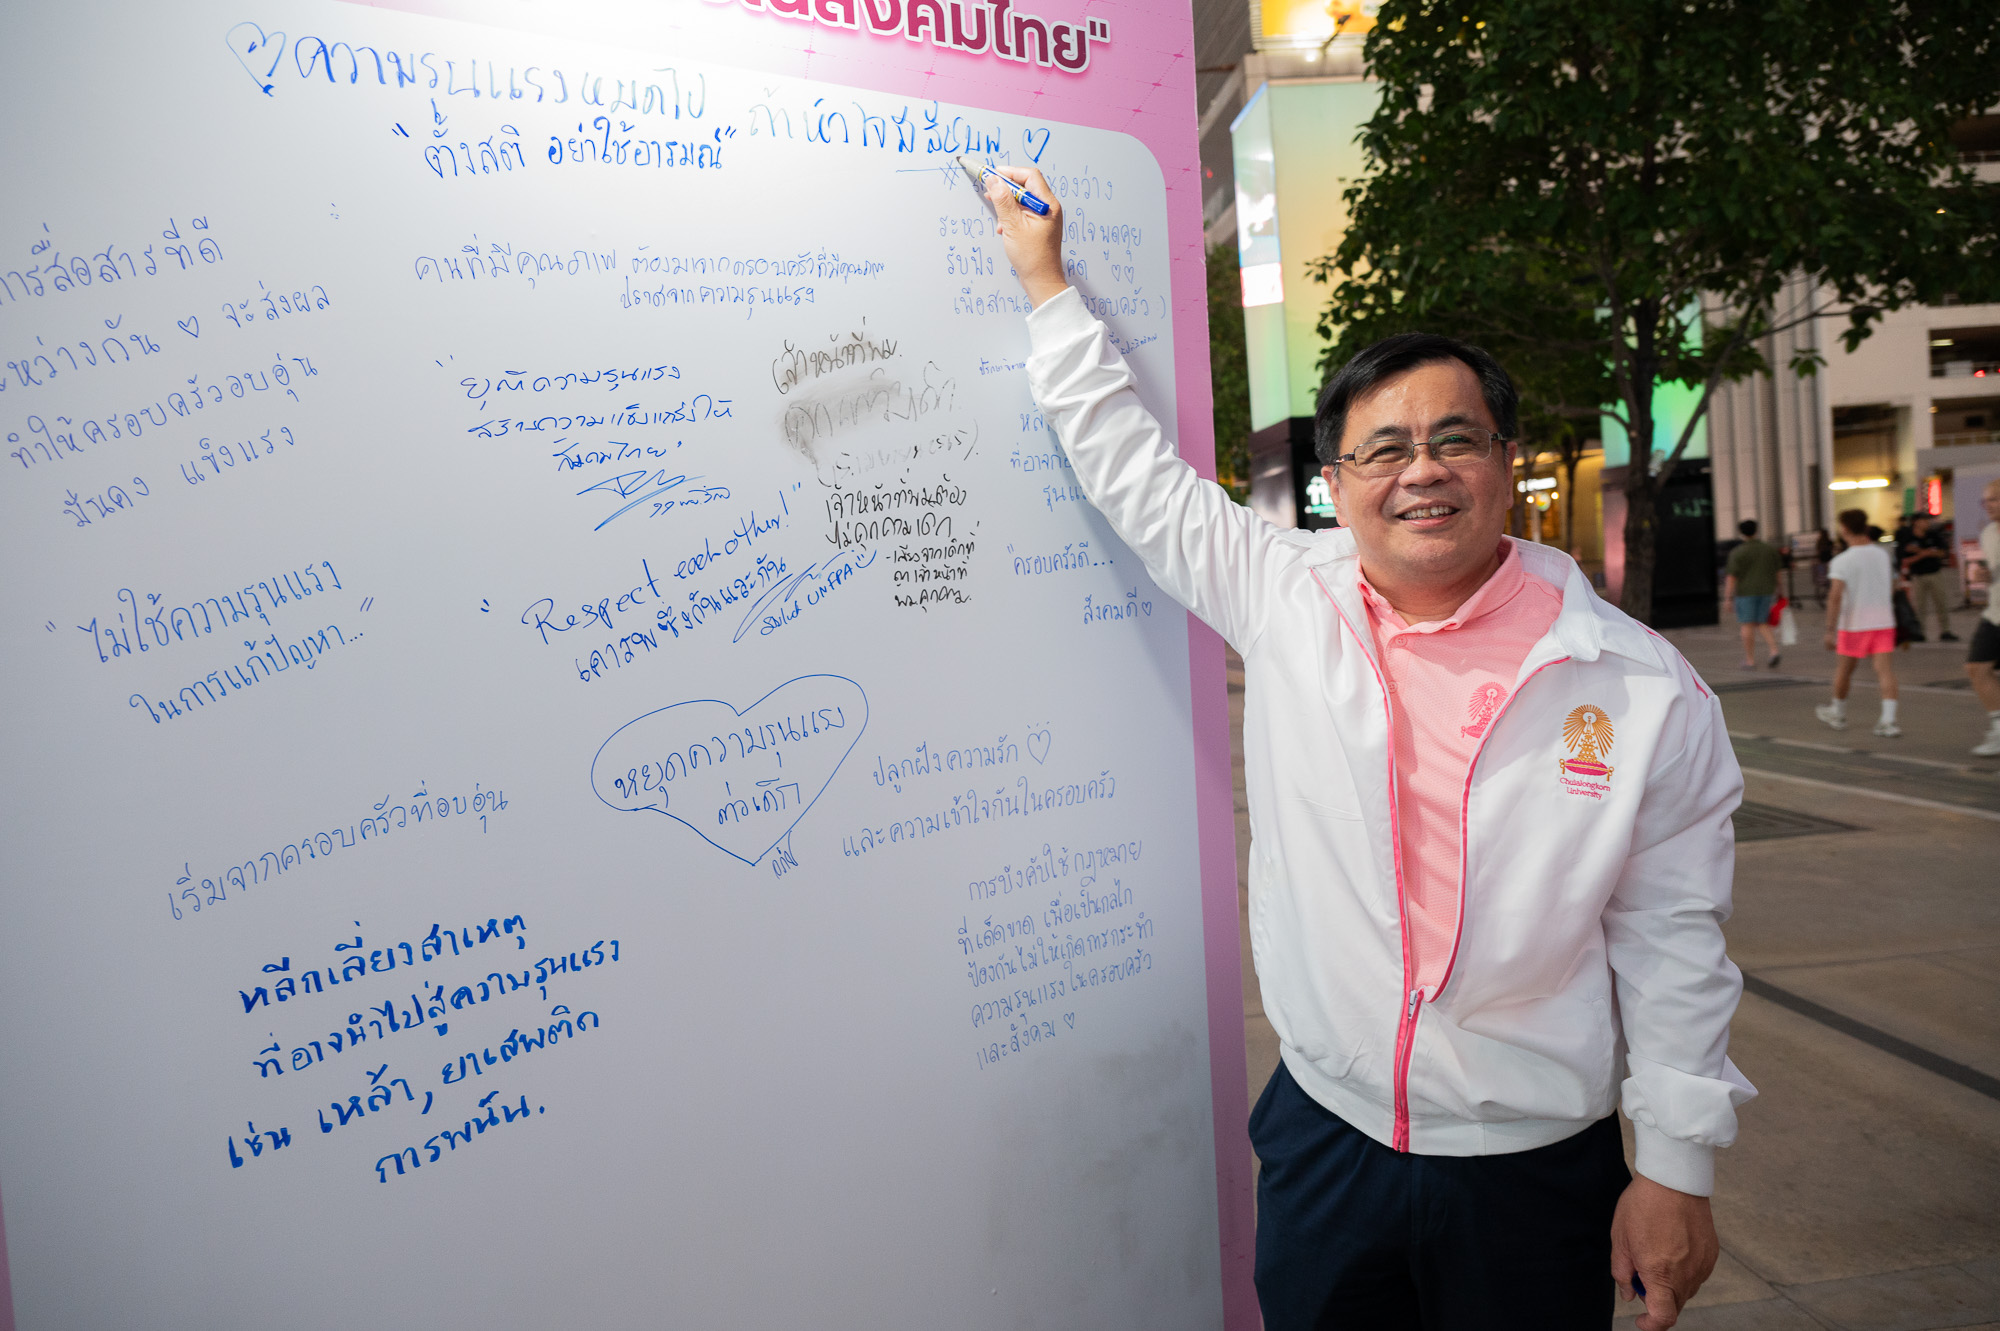 ในสังคมไทย"
ความรุนแรงหมดไป ถ้าหัวใจมีสีชมพู
"ตั้งสติ อย่าใช้อารมณ์"
การสื่อสารที่ดี
ระหว่างกัน จะส่งผล
ทำให้ครอบครัวอบอุ่น
มั่นคง แข็งแรง
คนที่มีคุณภาพ ต้องมาจากครอบครัวที่มีคุณภาพ
ปราศจากความรุนแรง
ช่องว่าง
เปิดใจพูดคุย
รับฟัง
ครอบครัว)
"ยุติความรุนแรง
สร้างความแข็งแกร่งให้
สังคมไทย"
เจ้าหน้าที่พม.
เจ้าหน้าที่พม.ต้อง
ไม่คุกคามเด็ก
-เสียงจากเด็กที่
ถูกเจ้าหน้าที่
พม.คุกคาม.
"Respect each other!"
เคารพซึ่งกันและกัน
UNFPA
ที่อาจก่อ
"ครอบครัวดี...
สังคมดี
"ไม่ใช้ความรุนแรง
ในการแก้ปัญหา..."
หยุดความรุนแรง
ต่อเด็ก
ปลูกฝังความรัก
และความเข้าใจกันในครอบครัว
เริ่มจากครอบครัวที่อบอุ่น
การบังคับใช้กฎหมาย
ที่เด็ดขาด เพื่อเป็นกลไก
ป้องกันไม่ให้เกิดการกระทำ
ความรุนแรงในครอบครัว
และสังคม
หลีกเลี่ยงสาเหตุ
ที่อาจนำไปสู่ความรุนแรง
เช่น เหล้า, ยาเสพติด
การพนัน.
Chulalongkorn
University